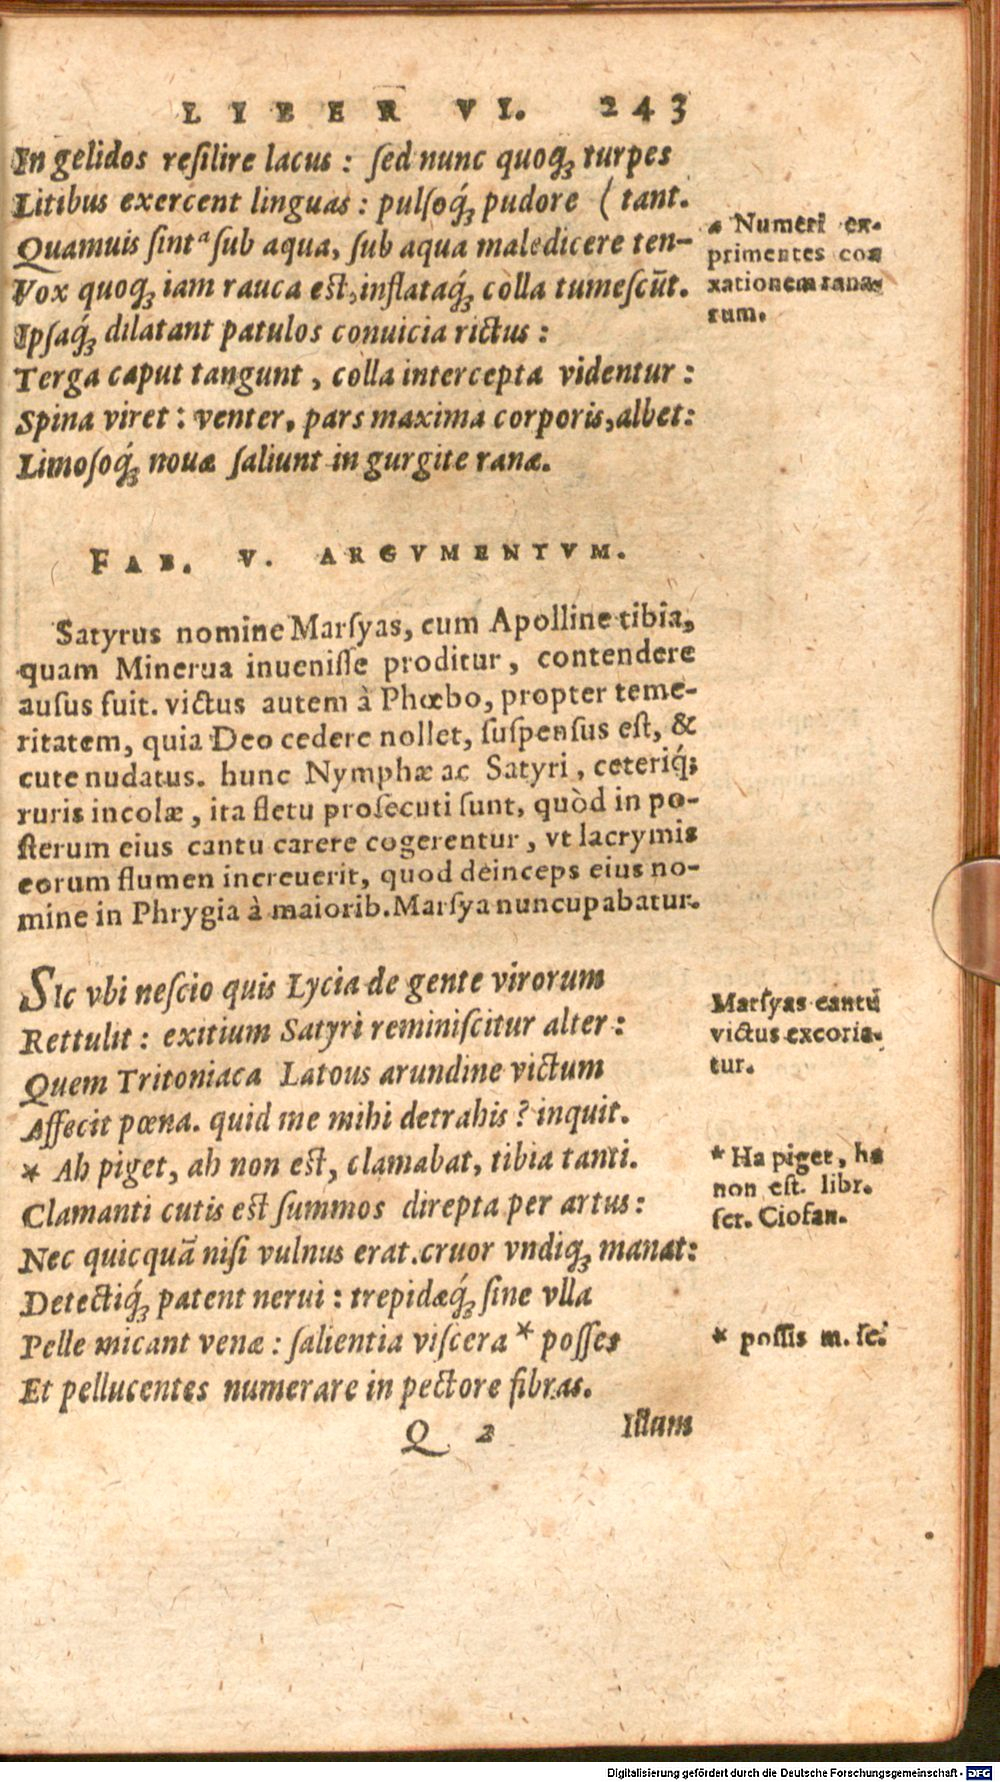 LIBER VI. 243
In gelidos resilire lacus : sed nunc quoq; turpes
Litibus exercent linguas : pulsoq́; pudore ( tant.
Quamuis sint ᵃ sub aqua, sub aqua maledicere ten-
Vox quoq; iam rauca est, inflataq́; colla tumescūt.
Ipsaq́; dilatant patulos conuicia rictus :
Terga caput tangunt, colla intercepta videntur :
Spina viret : venter, pars maxima corporis, albet:
Limosoq́; nouæ saliunt in gurgite ranæ.
a Numeri ex-
primentes coa
xationem rana-
rum.
FAB. V. ARGVMENTVM.
Satyrus nomine Marsyas, cum Apolline tibia,
quam Minerua inuenisse proditur, contendere
ausus fuit. victus autem à Phœbo, propter teme-
ritatem, quia Deo cedere nollet, suspensus est, &
cute nudatus. hunc Nymphæ ac Satyri, ceteriq́;
ruris incolæ, ita fletu prosecuti sunt, quòd in po-
sterum eius cantu carere cogerentur, vt lacrymis
eorum flumen increuerit, quod deinceps eius no-
mine in Phrygia à maiorib. Marsya nuncupabatur.
SIc vbi nescio quis Lycia de gente virorum
Rettulit : exitium Satyri reminiscitur alter :
Quem Tritoniaca Latous arundine victum
Affecit pœna. quid me mihi detrahis ? inquit.
* Ah piget, ah non est, clamabat, tibia tanti.
Clamanti cutis est summos direpta per artus :
Nec quicquā nisi vulnus erat. cruor vndiq; manat:
Detectiq́; patent nerui : trepidæq́; sine vlla
Pelle micant venæ : salientia viscera * posses
Et pellucentes numerare in pectore fibras.
Marsyas cantu
victus excoria-
tur.
* Ha piget, ha
non est. libr.
scr. Ciofan.
* possis m. se.
Q 2 Illam
Digitalisierung gefördert durch die Deutsche Forschungsgemeinschaft - DFG